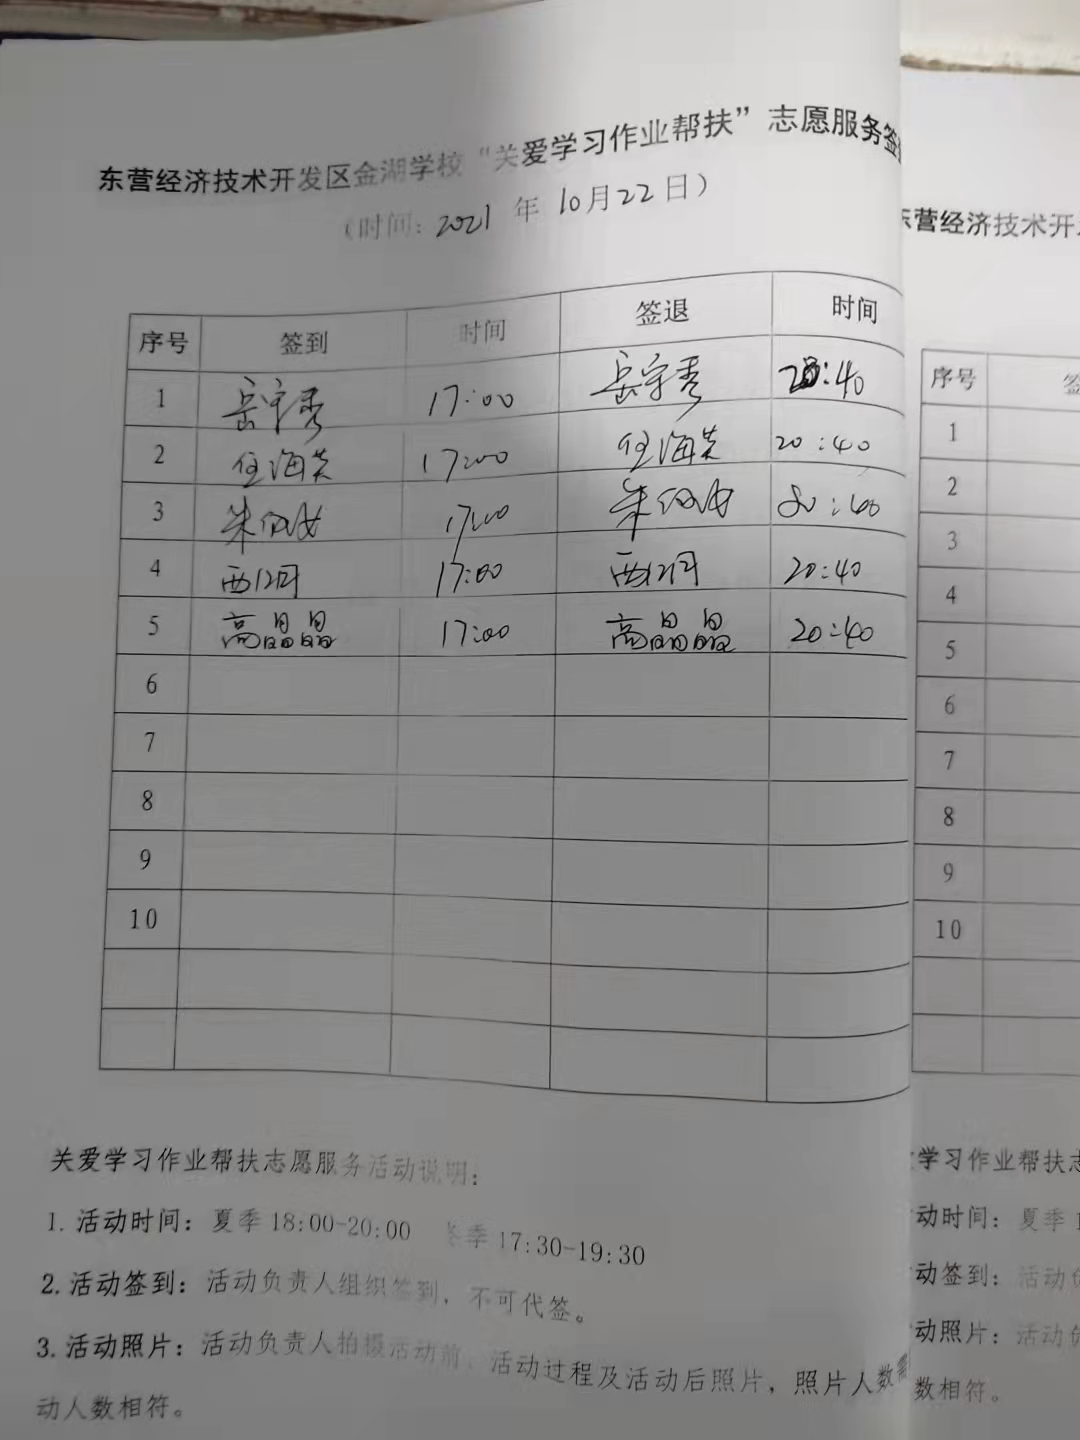 东营经济技术开发区金湖学校“关爱学习作业帮扶”志愿服务签
（时间：2021 年 10月22日）
序号 签到 时间 签退 时间
1 岳宇秀 17:00 岳宇秀 20:40
2 任海英 17:00 任海英 20:40
3 朱 17:00 朱 20:40
4 17:00 20:40
5 高晶晶 17:00 高晶晶 20:40
6
7
8
9
10
关爱学习作业帮扶志愿服务活动说明：
1. 活动时间：夏季 18:00-20:00 冬季 17:30-19:30
2. 活动签到：活动负责人组织签到，不可代签。
3. 活动照片：活动负责人拍摄活动前、活动过程及活动后照片，照片人数需
动人数相符。
东营经济技术开
序号 签
1
2
3
4
5
6
7
8
9
10
学习作业帮扶志
动时间：夏季 1
动签到：活动负
动照片：活动负
数相符。